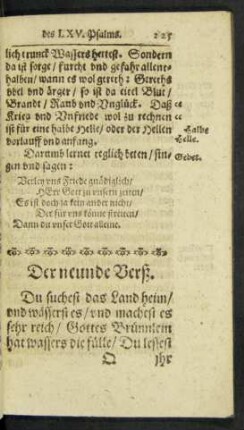 des LXV. Psalms. 225
lich trunck Wassers hettest. Sondern
da ist sorge / furcht vnd gefahr allent-
halben / wann es wol gereth: Gereths
vbel vnd ärger / so ist da eitel Blut /
Brandt / Raub vnd Vnglück. Daß
Krieg vnd Vnfriede wol zu rechnen
ist für eine halbe Helle / oder der Hellen
vorlauff vnd anfang.
Halbe
Helle.
Darumb lernet teglich beten / sin-
gen vnd sagen:
Gebet.
Verley vns Friede gnädiglich /
HErr Gott zu vnsern zeiten /
Es ist doch ja kein ander nicht /
Der für vns könne streiten /
Dann du vnser Gott alleine.
Der neunde Verß.
Du suchest das Land heim /
vnd wässerst es / vnd machest es
sehr reich / Gottes Brünnlein
hat wassers die fülle / Du lessest
Q ihr